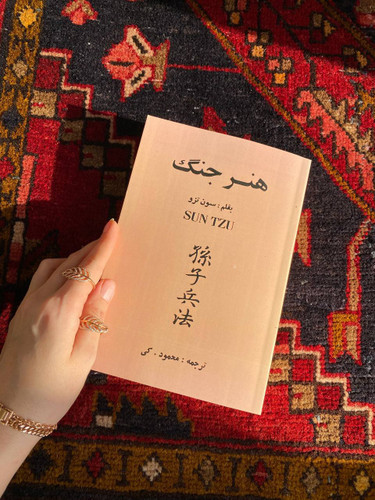 هنر جنگ
بقلم : سون تزو
SUN TZU
孫
子
兵
法
ترجمه : محمود . کی